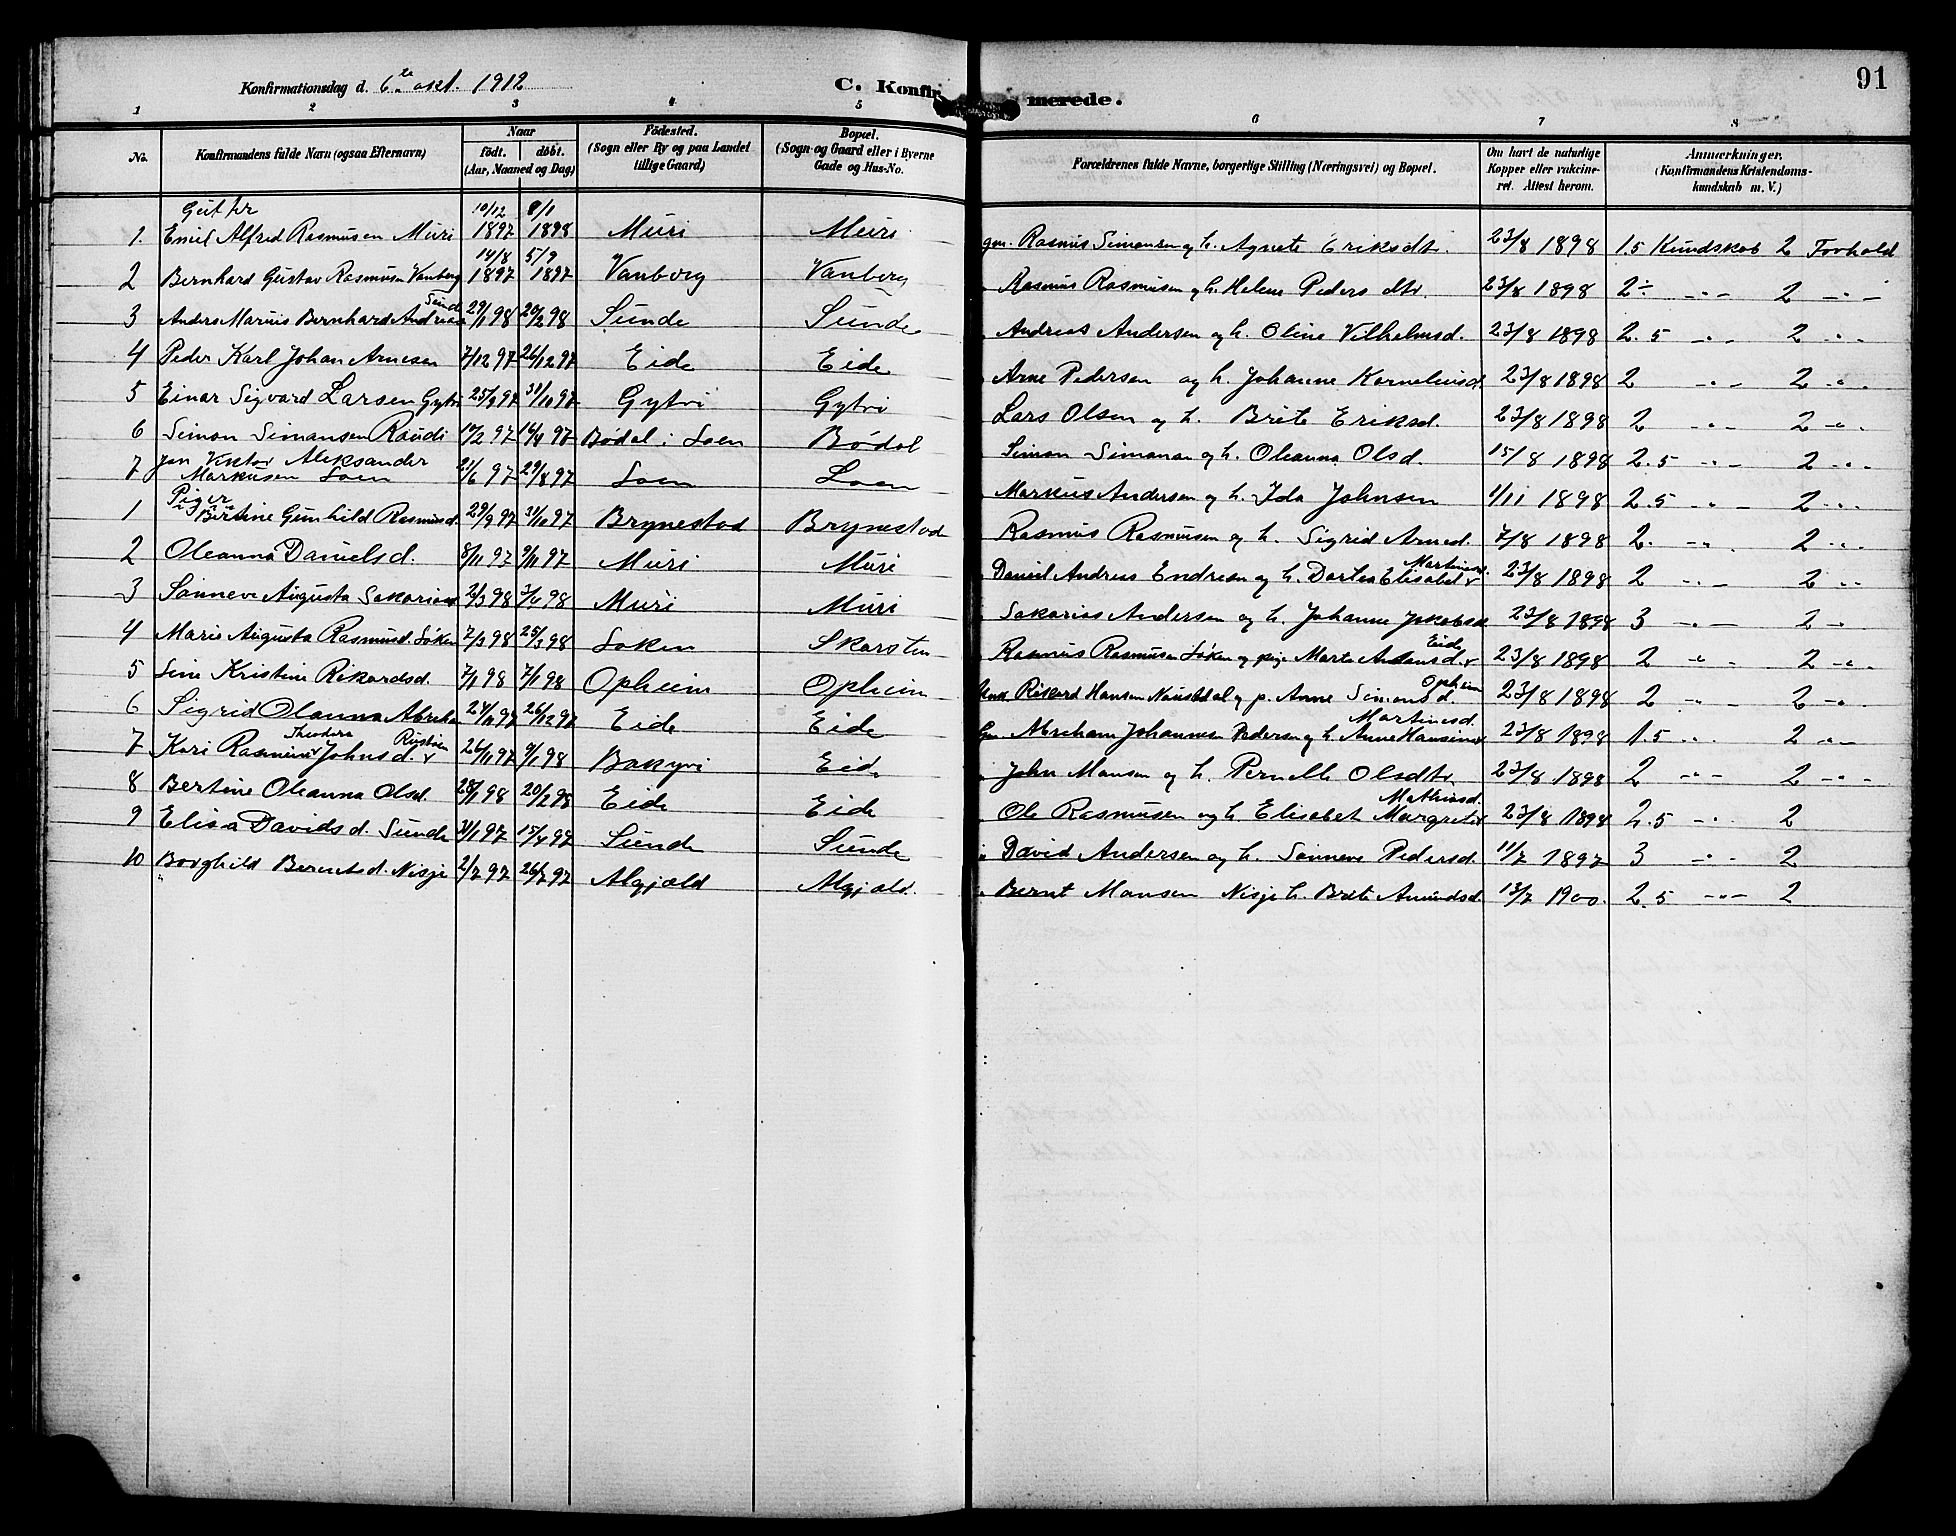 91
Konfirmationsdag d. 6te okt. 1912
C. Konfirmerede.
1 2 3 4 5 6 7 8
No.
Konfirmandens fulde Navn (ogsaa Efternavn)
Naar
födt. döbt.
(Aar, Maaned og Dag)
Födested.
(Sogn eller By og paa Landet
tillige Gaard)
Bopæl.
(Sogn og Gaard eller i Byerne
Gade og Hus-No.
Forældrenes fulde Navne, borgerlige Stilling (Næringsvei) og Bopæl.
Om havt de naturlige
Kopper eller vakcine-
ret. Attest herom.
Anmærkninger.
(Konfirmandens Kristendoms-
kundskab m. V.)
Gutter
1. Emil Alfred Rasmusen Muri 10/12 1897 8/1 1898 Muri Muri gm. Rasmus Simonsen og h. Agnete Eriksdtr. 23/8 1898 1.5 Kundskab 2 Forhold
2 Bernhard Gustav Rasmusen Vanberg 14/8 1897 5/9 1897 Vanberg Vanberg Rasmus Rasmusen og h. Helene Peders dtr. 23/8 1898 2÷ -"- 2 -"-
3 Anders Marius Bernhard Andreas Sunde 29/1 98 20/2 98 Sunde Sunde Andreas Andersen og h. Oline Vilhelmsd. 23/8 1898 2.5 -"- 2 -"-
4 Peder Karl Johan Arnesen 7/12 97 26/12 97 Eide Eide Arne Pedersen og h. Johanne Korneliusd. 23/8 1898 2 -"- 2 -"-
5 Einar Sigvard Larsen Gytri 25/9 97 31/10 97 Gytri Gytri Lars Olsen og h. Brite Eriksd. 23/8 1898 2 -"- 2 -"-
6 Simon Simonsen Raudi 14/2 97 16/4 97 Bødal i Loen Bødal Simon Simonsen og h. Oleanna Olsd. 15/8 1898 2.5 -"- 2 -"-
7 Jon Viktor Aleksander
Markusen Loen 21/6 97 29/8 97 Loen Loen Markus Andersen og h. Ida Johnsen 1/11 1898 2.5 -"- 2 -"-
Piger
1 Bertine Gunhild Rasmusd. 29/9 97 31/10 97 Brynestad Brynestad Rasmus Rasmusen og h. Sigrid Arnesd. 7/8 1898 2. -"- 2 -"-
2 Oleanna Danielsd. 8/11 97 9/11 97 Muri Muri Daniel Andreas Endresen og h. Dortea Elisabet Martinusd. 23/8 1898 2 -"- 2 -"-
3 Sanneve Augusta Sakariasd 2/3 98 3/4 98 Muri Muri Sakarias Andersen og h. Johanne Jakobsd 23/8 1898 3 -"- 2 -"-
4 Marie Augusta Rasmusd. Løken 7/3 98 25/3 98 Løken Skarsten Rasmus Rasmusen Løken og pige Marta Andersd. Eide 23/8 1898 2 -"- 2 -"-
5 Line Kristine Rikardsd. 7/1 98 7/1 98 Opheim Opheim Unk. Rikard Hansen Naustdal og p. Anne Simonsd. Opheim 23/8 1898 2 -"- 2 -"-
6 Sigrid Oleanna Abraha 24/11 97 26/12 97 Eide Eide Gm. Abraham Johannes Pedersen og h. Anne Hansine Martinusd. 23/8 1898 1.5 -"- 2 -"-
7 Kari Rasmine Theodora Johnsd. 26/11 97 9/1 98 Bakyri Eide John Monsen og h. Pernelle Olsdtr 23/8 1898 2 -"- 2 -"-
8 Bertine Oleanna Olsd. 28/1 98 20/2 98 Eide Eide Ole Rasmusen og h. Elisabet Margrete Mathiasd. 23/8 1898 2.5 -"- 2
9 Elisa Davids d. Sunde 31/1 97 15/4 97 Sunde Sunde David Andersen og h. Sanneve Pedersd. 11/7 1897 3 -"- 2
10 Borghild Berentsd. Nisje 2/7 97 26/7 97 Algjæld Algjæld. Bernt Monsen Nisje h. Brite Amundsd. 13/7 1900. 2.5 -"- 2